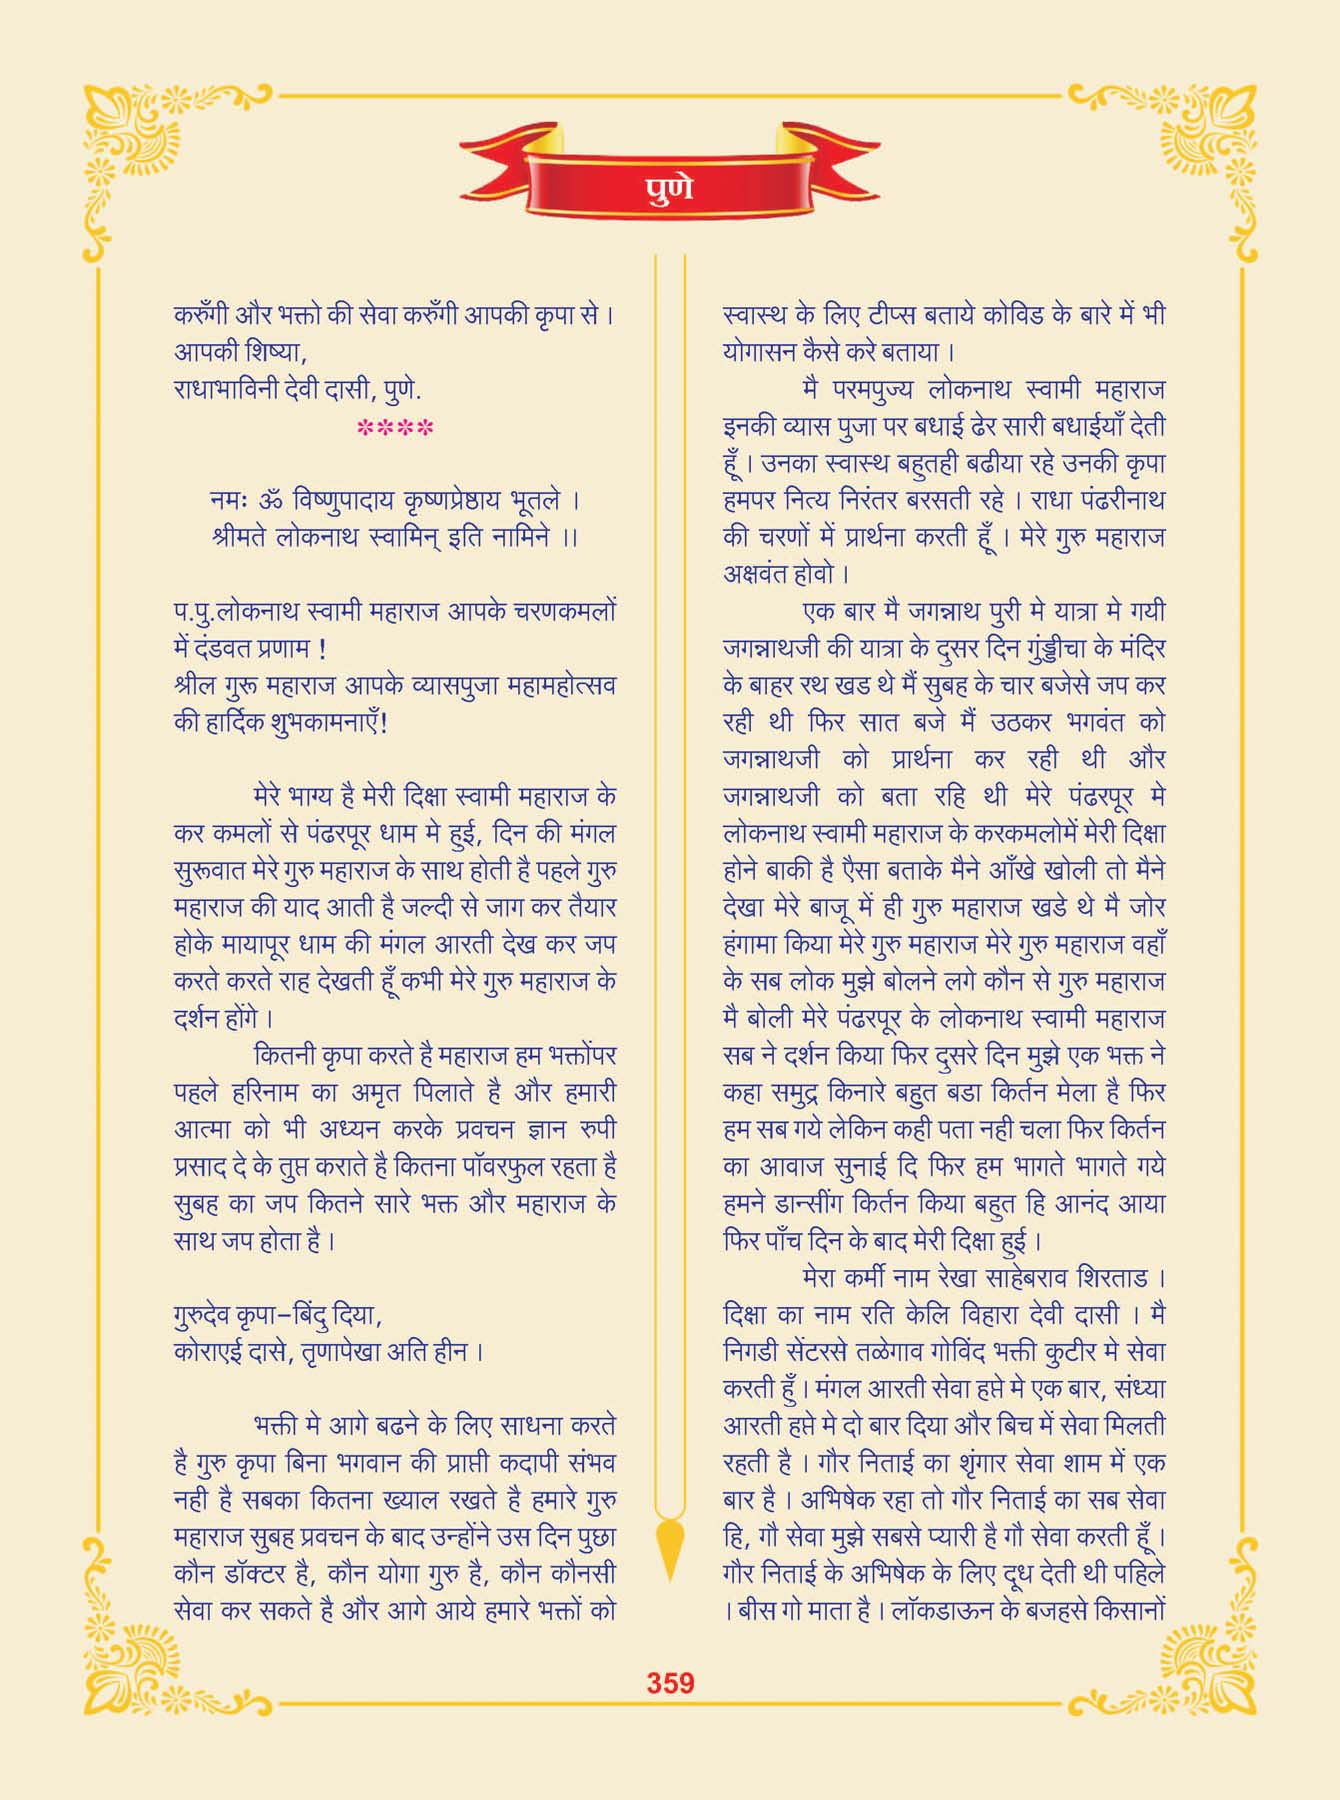 पुणे
करुँगी और भक्तो की सेवा करुँगी आपकी कृपा से ।
आपकी शिष्या,
राधाभाविनी देवी दासी, पुणे.
****
नमः ॐ विष्णुपादाय कृष्णप्रेष्ठाय भूतले ।
श्रीमते लोकनाथ स्वामिन् इति नामिने ।।
प.पु.लोकनाथ स्वामी महाराज आपके चरणकमलों
में दंडवत प्रणाम !
श्रील गुरू महाराज आपके व्यासपुजा महामहोत्सव
की हार्दिक शुभकामनाएँ!
मेरे भाग्य है मेरी दिक्षा स्वामी महाराज के
कर कमलों से पंढरपूर धाम मे हुई, दिन की मंगल
सुरूवात मेरे गुरु महाराज के साथ होती है पहले गुरु
महाराज की याद आती है जल्दी से जाग कर तैयार
होके मायापूर धाम की मंगल आरती देख कर जप
करते करते राह देखती हूँ कभी मेरे गुरु महाराज के
दर्शन होंगे ।
कितनी कृपा करते है महाराज हम भक्तोंपर
पहले हरिनाम का अमृत पिलाते है और हमारी
आत्मा को भी अध्यन करके प्रवचन ज्ञान रुपी
प्रसाद दे के तुप्त कराते है कितना पॉवरफुल रहता है
सुबह का जप कितने सारे भक्त और महाराज के
साथ जप होता है ।
गुरुदेव कृपा–बिंदु दिया,
कोराएई दासे, तृणापेखा अति हीन ।
भक्ती मे आगे बढने के लिए साधना करते
है गुरु कृपा बिना भगवान की प्राप्ती कदापी संभव
नही है सबका कितना ख्याल रखते है हमारे गुरु
महाराज सुबह प्रवचन के बाद उन्होंने उस दिन पुछा
कौन डॉक्टर है, कौन योगा गुरु है, कौन कौनसी
सेवा कर सकते है और आगे आये हमारे भक्तों को
स्वास्थ के लिए टीप्स बताये कोविड के बारे में भी
योगासन कैसे करे बताया ।
मै परमपुज्य लोकनाथ स्वामी महाराज
इनकी व्यास पुजा पर बधाई ढेर सारी बधाईयाँ देती
हूँ । उनका स्वास्थ बहुतही बढीया रहे उनकी कृपा
हमपर नित्य निरंतर बरसती रहे । राधा पंढरीनाथ
की चरणों में प्रार्थना करती हूँ । मेरे गुरु महाराज
अक्षवंत होवो ।
एक बार मै जगन्नाथ पुरी मे यात्रा मे गयी
जगन्नाथजी की यात्रा के दुसर दिन गुंड्डीचा के मंदिर
के बाहर रथ खड थे मैं सुबह के चार बजेसे जप कर
रही थी फिर सात बजे मैं उठकर भगवंत को
जगन्नाथजी को प्रार्थना कर रही थी और
जगन्नाथजी को बता रहि थी मेरे पंढरपूर मे
लोकनाथ स्वामी महाराज के करकमलोमें मेरी दिक्षा
होने बाकी है ऐैसा बताके मैने आँखे खोली तो मैने
देखा मेरे बाजू में ही गुरु महाराज खडे थे मै जोर
हंगामा किया मेरे गुरु महाराज मेरे गुरु महाराज वहाँ
के सब लोक मुझे बोलने लगे कौन से गुरु महाराज
मै बोली मेरे पंढरपूर के लोकनाथ स्वामी महाराज
सब ने दर्शन किया फिर दुसरे दिन मुझे एक भक्त ने
कहा समुद्र किनारे बहुत बडा किर्तन मेला है फिर
हम सब गये लेकिन कही पता नही चला फिर किर्तन
का आवाज सुनाई दि फिर हम भागते भागते गये
हमने डान्सींग किर्तन किया बहुत हि आनंद आया
फिर पाँच दिन के बाद मेरी दिक्षा हुई ।
मेरा कर्मी नाम रेखा साहेबराव शिरताड ।
दिक्षा का नाम रति केलि विहारा देवी दासी । मै
निगडी सेंटरसे तळेगाव गोविंद भक्ती कुटीर मे सेवा
करती हुँ । मंगल आरती सेवा हप्ते मे एक बार, संध्या
आरती हप्ते मे दो बार दिया और बिच में सेवा मिलती
रहती है । गौर निताई का शृंगार सेवा शाम में एक
बार है । अभिषेक रहा तो गौर निताई का सब सेवा
हि, गौ सेवा मुझे सबसे प्यारी है गौ सेवा करती हूँ ।
गौर निताई के अभिषेक के लिए दूध देती थी पहिले
। बीस गो माता है । लॉकडाऊन के बजहसे किसानों
359